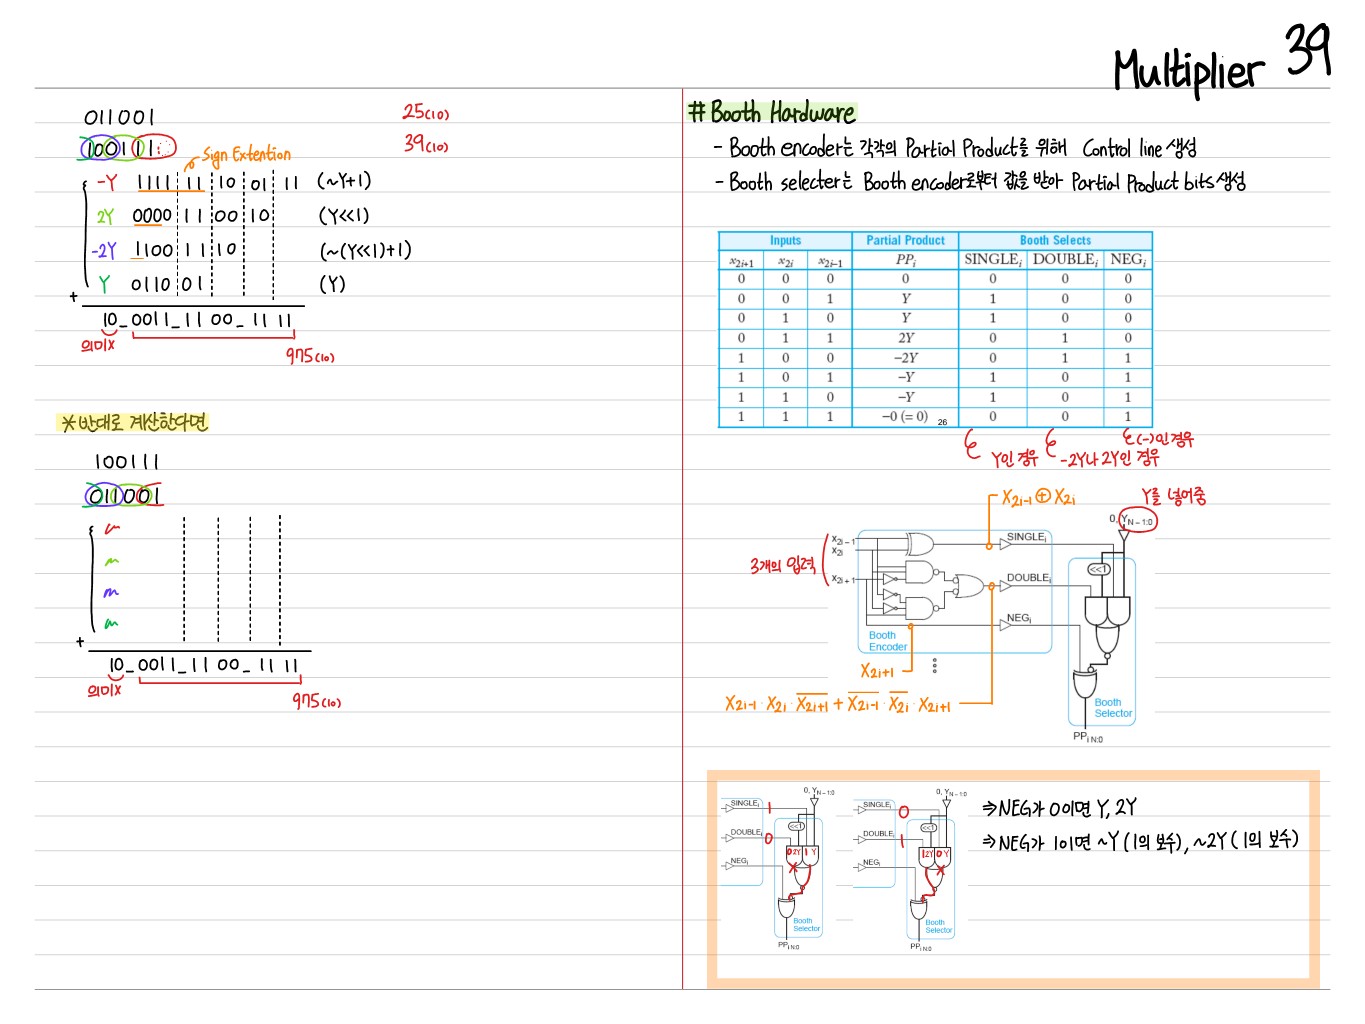 Multiplier 39
011001 25(10)
100111 39(10)
Sign Extention
-Y 1111 11 10 01 11 (~Y+1)
2Y 0000 11 00 10 (Y<<1)
-2Y 1100 11 10 (~(Y<<1)+1)
Y 0110 01 (Y)
+
10_0011_11 00_11 11
의미X
975(10)
*반대로 계산한다면
100111
011001
+
10_0011_11 00_11 11
의미X
975(10)
# Booth Hardware
- Booth encoder는 각각의 Partial Product를 위해 Control line 생성
- Booth selecter는 Booth encoder로부터 값을 받아 Partial Product bits 생성
Inputs Partial Product Booth Selects
x2i+1 x2i x2i−1 PPi SINGLEi DOUBLEi NEGi
0 0 0 0 0 0 0
0 0 1 Y 1 0 0
0 1 0 Y 1 0 0
0 1 1 2Y 0 1 0
1 0 0 −2Y 0 1 1
1 0 1 −Y 1 0 1
1 1 0 −Y 1 0 1
1 1 1 −0 (= 0) 0 0 1
26
Y인 경우
-2Y나 2Y인 경우
(-)인 경우
X2i-1 ⊕ X2i
Y를 넣어줌
0, YN−1:0
3개의 입력
x2i−1
x2i
x2i+1
SINGLEi
<<1
DOUBLEi
NEGi
Booth
Encoder
X2i+1
X2i-1 · X2i · X̅2̅i̅+̅1̅ + X̅2̅i̅-̅1̅ · X̅2̅i̅ · X2i+1
Booth
Selector
PPi N:0
0, YN−1:0
SINGLEi 1
<<1
DOUBLEi 0
0 2Y 1 Y
NEGi
Booth
Selector
PPi N:0
0, YN−1:0
SINGLEi 0
<<1
DOUBLEi 1
1 2Y 0 Y
NEGi
Booth
Selector
PPi N:0
⇒NEG가 0이면 Y, 2Y
⇒NEG가 1이면 ~Y (1의 보수), ~2Y (1의 보수)